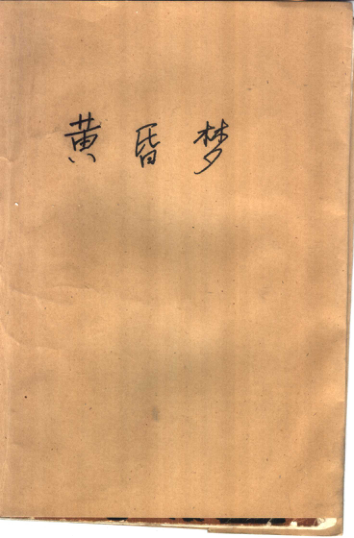 黄昏梦